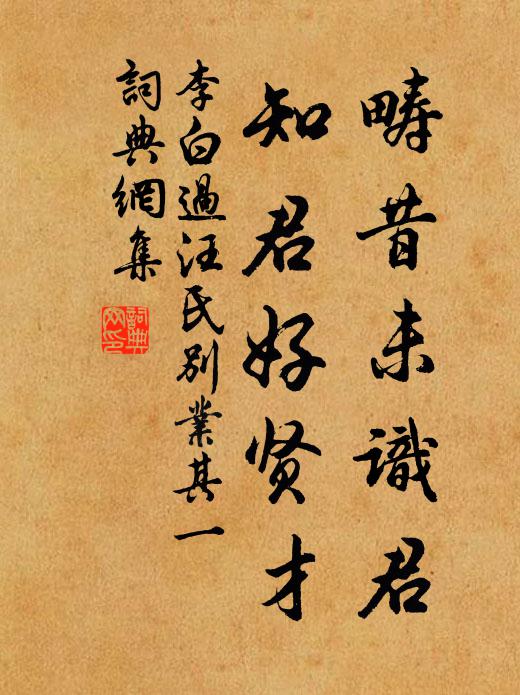 疇昔未識君
知君好贤才
李白過汪氏別業其一
詞典網集
詞典網印